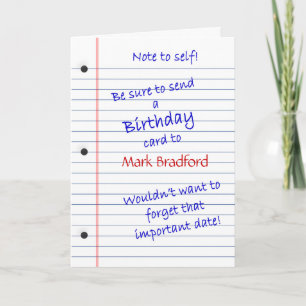 Note to self!
Be sure to send
a
Birthday
card to
Mark Bradford
Wouldn't want to
forget that
important date!